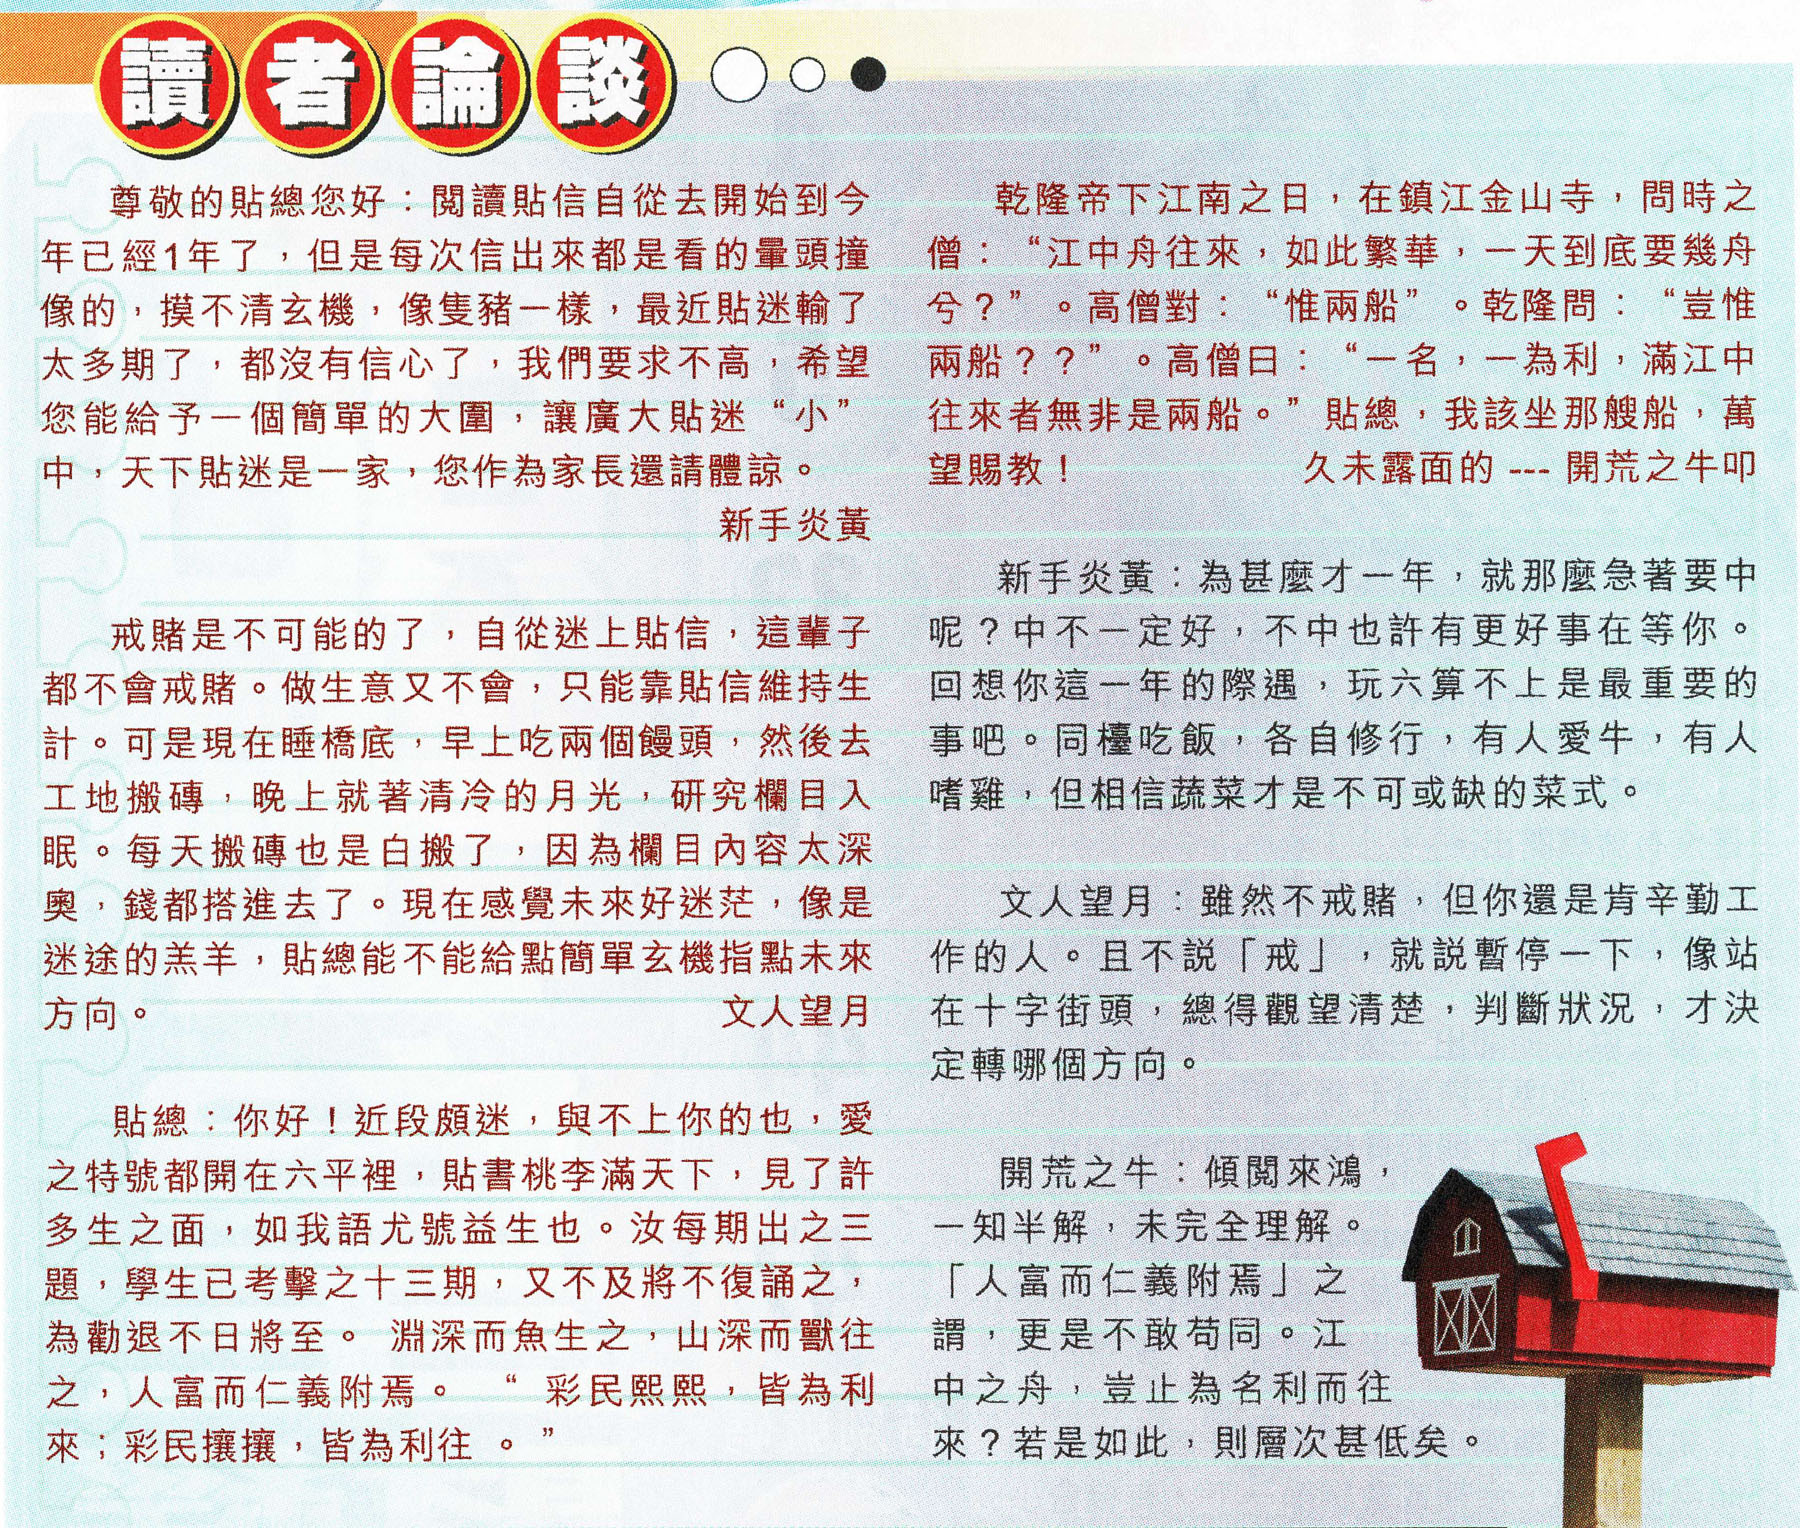 讀者論談
尊敬的貼總您好：閱讀貼信自從去開始到今
年已經1年了，但是每次信出來都是看的暈頭撞
像的，摸不清玄機，像隻豬一樣，最近貼迷輸了
太多期了，都沒有信心了，我們要求不高，希望
您能給予一個簡單的大圍，讓廣大貼迷“小”
中，天下貼迷是一家，您作為家長還請體諒。
新手炎黃
戒賭是不可能的了，自從迷上貼信，這輩子
都不會戒賭。做生意又不會，只能靠貼信維持生
計。可是現在睡橋底，早上吃兩個饅頭，然後去
工地搬磚，晚上就著清冷的月光，研究欄目入
眠。每天搬磚也是白搬了，因為欄目內容太深
奧，錢都搭進去了。現在感覺未來好迷茫，像是
迷途的羔羊，貼總能不能給點簡單玄機指點未來
方向。 文人望月
貼總：你好！近段頗迷，與不上你的也，愛
之特號都開在六平裡，貼書桃李滿天下，見了許
多生之面，如我語尤號益生也。汝每期出之三
題，學生已考擊之十三期，又不及將不復誦之，
為勸退不日將至。 淵深而魚生之，山深而獸往
之，人富而仁義附焉。 “ 彩民熙熙，皆為利
來；彩民攘攘，皆為利往 。”
乾隆帝下江南之日，在鎮江金山寺，問時之
僧：“江中舟往來，如此繁華，一天到底要幾舟
兮？”。高僧對：“惟兩船”。乾隆問：“豈惟
兩船？？”。高僧曰：“一名，一為利，滿江中
往來者無非是兩船。”貼總，我該坐那艘船，萬
望賜教！ 久未露面的 --- 開荒之牛叩
新手炎黃：為甚麼才一年，就那麼急著要中
呢？中不一定好，不中也許有更好事在等你。
回想你這一年的際遇，玩六算不上是最重要的
事吧。同檯吃飯，各自修行，有人愛牛，有人
嗜雞，但相信蔬菜才是不可或缺的菜式。
文人望月：雖然不戒賭，但你還是肯辛勤工
作的人。且不説「戒」，就説暫停一下，像站
在十字街頭，總得觀望清楚，判斷狀況，才決
定轉哪個方向。
開荒之牛：傾閱來鴻，
一知半解，未完全理解。
「人富而仁義附焉」之
謂，更是不敢苟同。江
中之舟，豈止為名利而往
來？若是如此，則層次甚低矣。